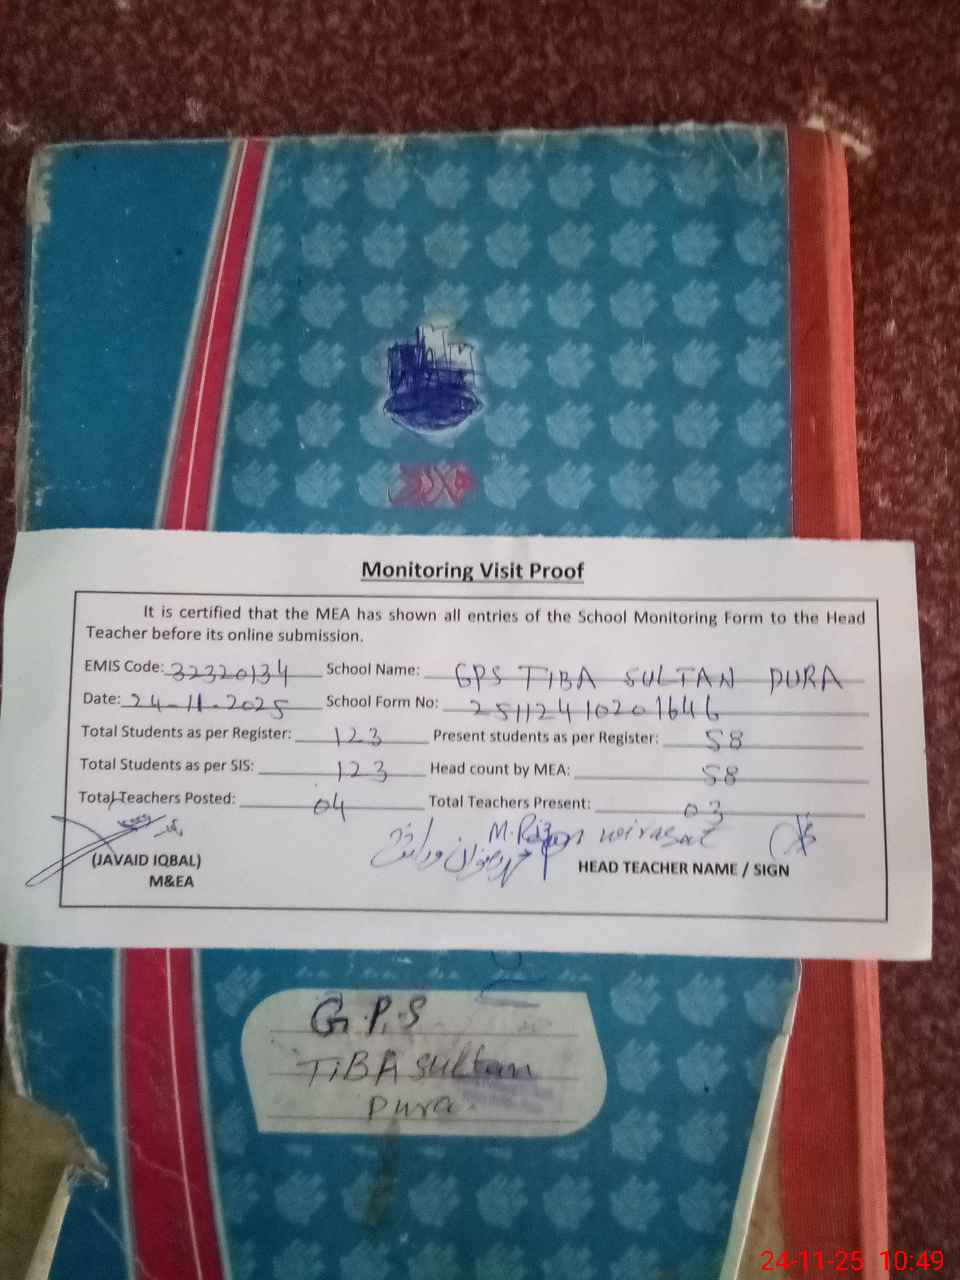 Monitoring Visit Proof
It is certified that the MEA has shown all entries of the School Monitoring Form to the Head
Teacher before its online submission.
EMIS Code: 32320134 School Name: GPS TIBA SULTAN PURA
Date: 24-11-2025 School Form No: 25112410201646
Total Students as per Register: 123 Present students as per Register: 58
Total Students as per SIS: 123 Head count by MEA: 58
Total Teachers Posted: 04 Total Teachers Present: 03
محمد رضوان وراثت M. Rizwan wirasat
(JAVAID IQBAL) HEAD TEACHER NAME / SIGN
M&EA
G.P.S
TiBA sultan
pura.
24-11-25 10:49